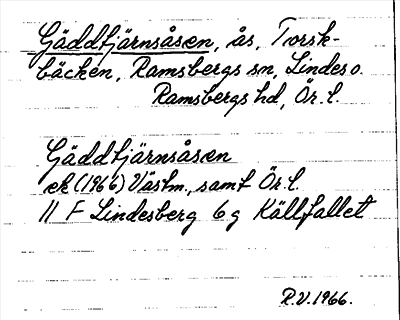 Gäddtjärnsåsen, ås, Torsk-
bäcken, Ramsbergs sn, Lindes o.
Ramsbergs hd, Ör. l.
Gäddtjärnsåsen
ek (1966) Västm., samt Ör. l.
11 F Lindesberg 6 g Källfallet
R.V. 1966.